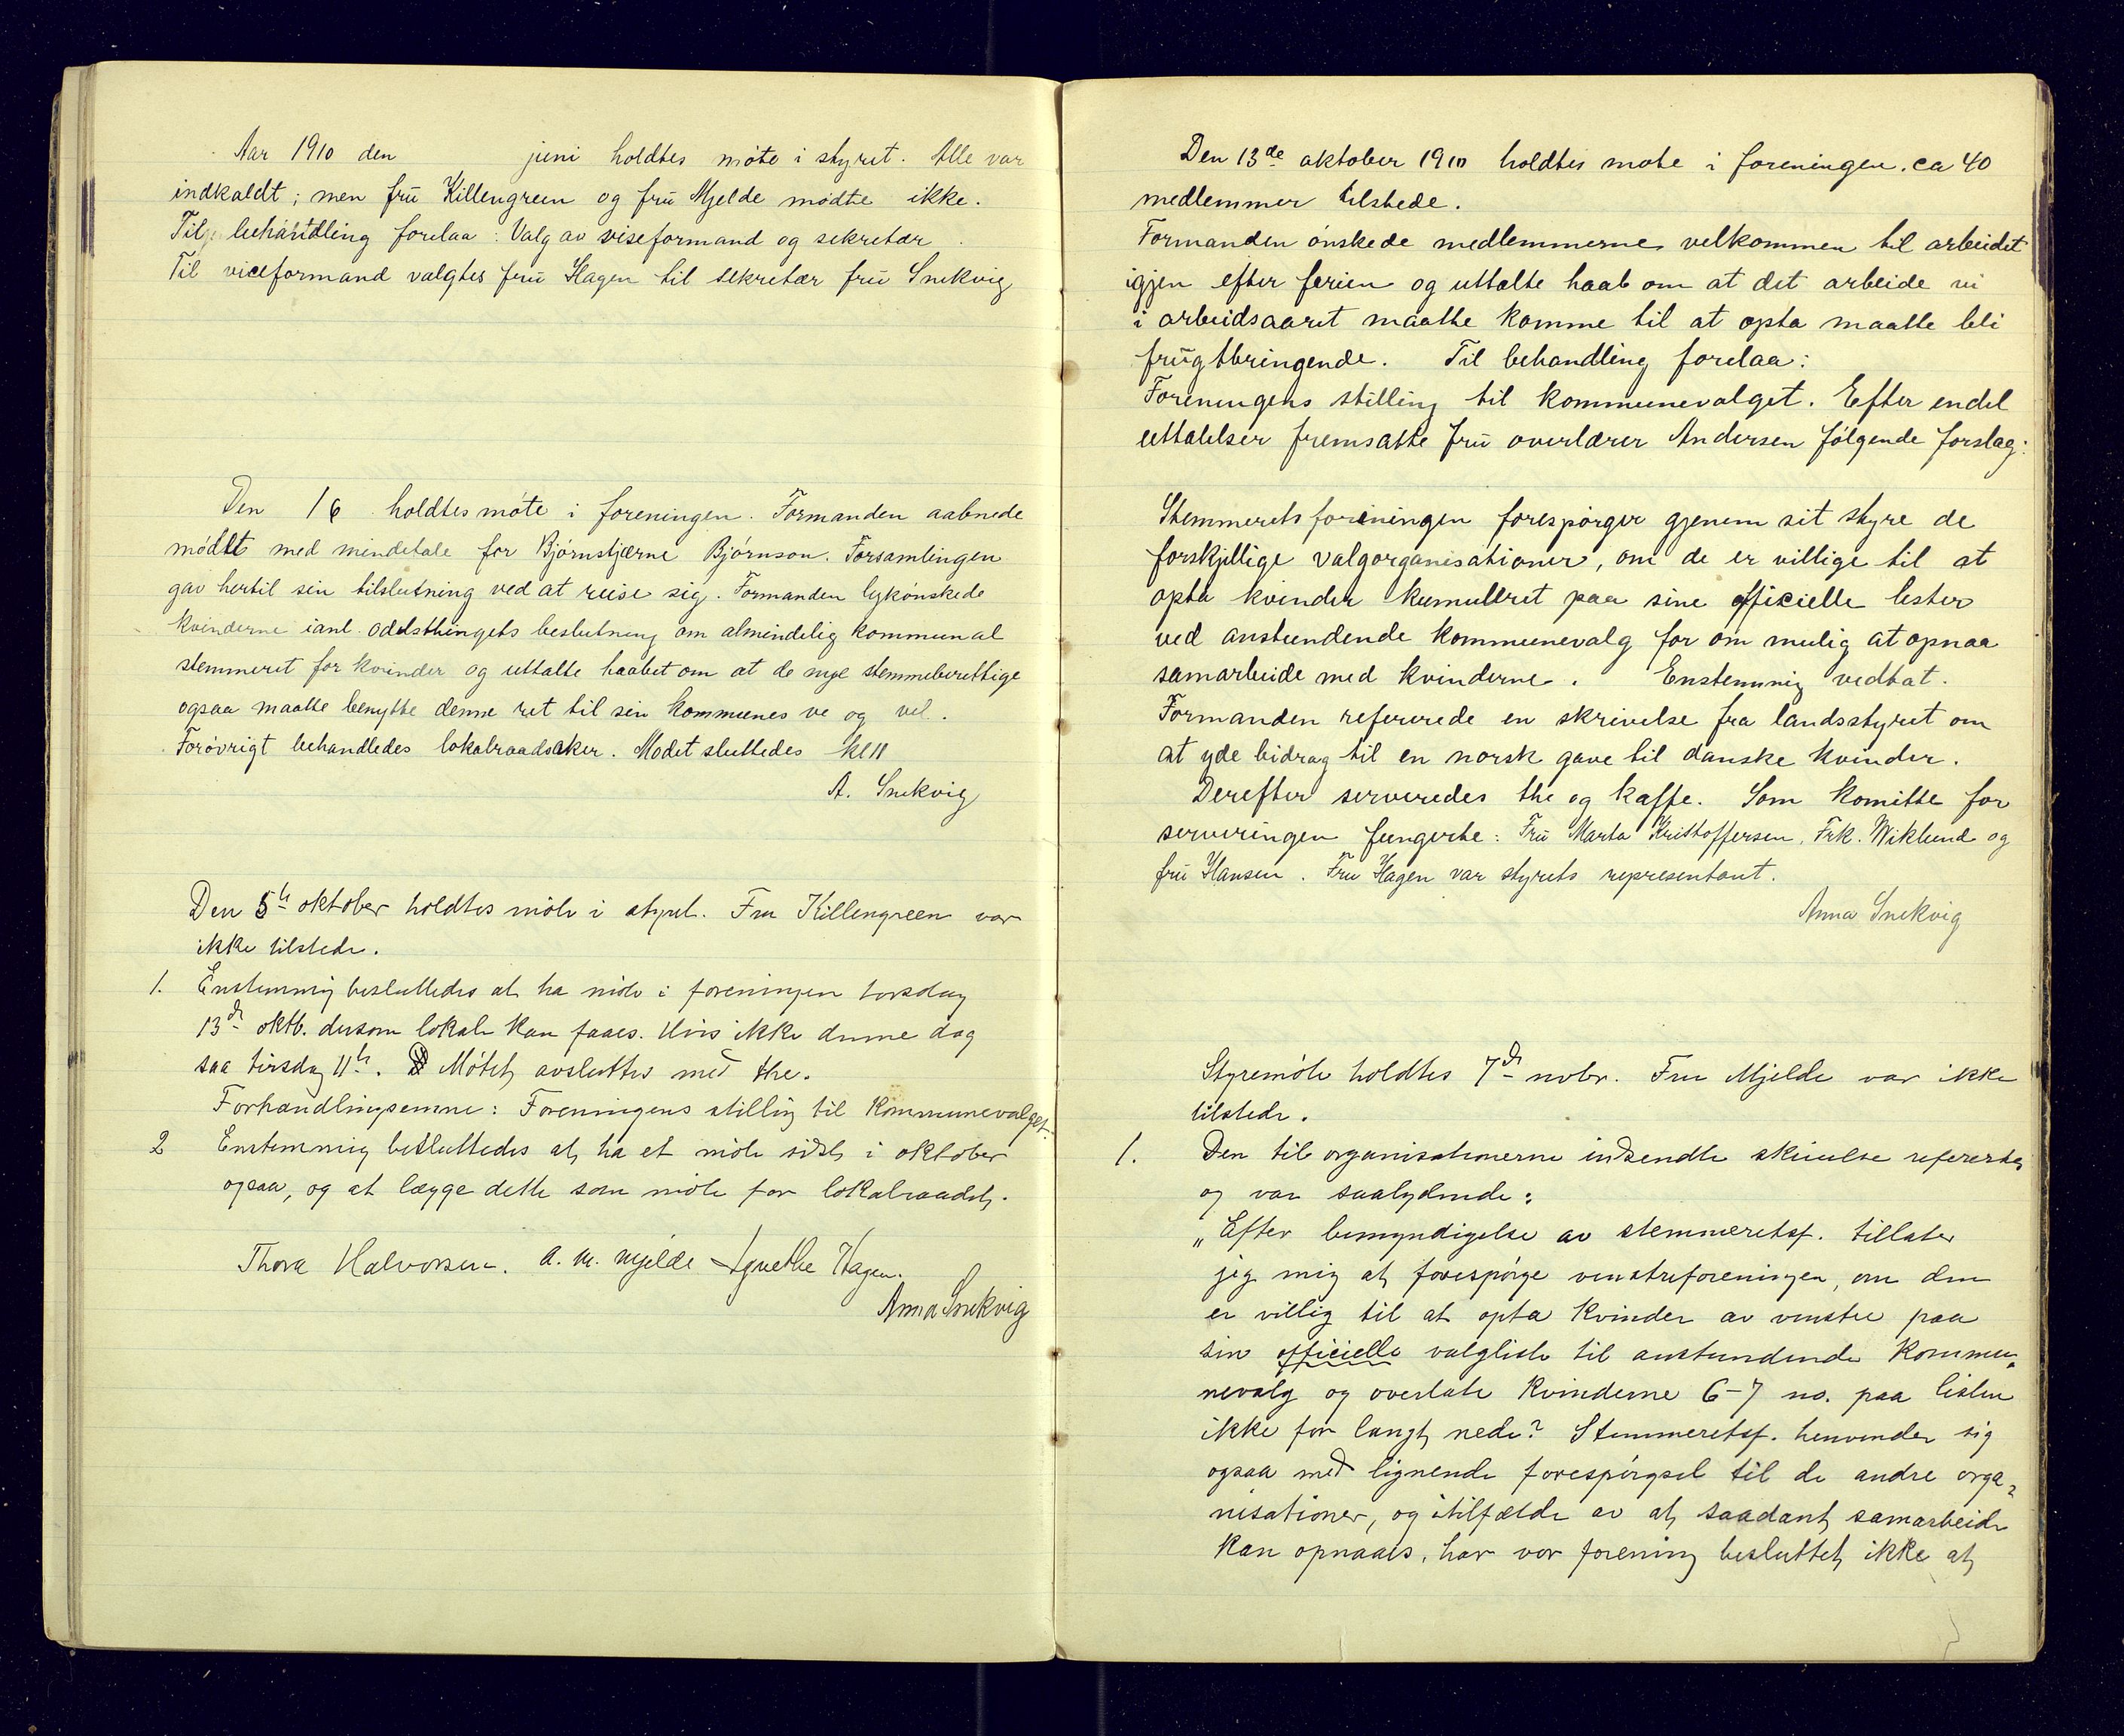 Aar 1910 den juni holdtes møte i styret. Alle var
indkaldt; men fru Killengreen og fru Mjelde mødte ikke.
Til behandling forelaa: Valg av viseformand og sekretær.
Til viceformand valgtes fru Hagen til sekretær fru Snekvig
Den 16 holdtes møte i foreningen. Formanden aabnede
mødet med mindetale for Bjørnstjerne Bjørnson. Forsamlingen
gav hertil sin tilslutning ved at reise sig. Formanden lykønskede
kvinderne ianl. odelsthingets beslutning om almindelig kommunal
stemmeret for kvinder og uttalte haabet om at de nye stemmeberettige
ogsaa maatte benytte denne ret til sin kommunes ve og vel.
Forøvrigt behandledes lokalraadsaker. Mødet sluttedes kl 11
A. Snekvig
Den 5te oktober holdtes møte i styret. Fru Killengreen var
ikke tilstede.
1. Enstemmig besluttedes at ha møte i foreningen torsdag
13de oktb. dersom lokale kan faaes. Hvis ikke denne dag
saa tirsdag 11te. Møtet avsluttes med the.
Forhandlingsemne: Foreningens stilling til kommunevalget.
2 Enstemmig besluttedes at ha et møte sidst i oktober
ogsaa, og at lægge dette som møte for lokalraadet.
Thora Halvorsen. A. M. Mjelde Agnethe Hagen.
Anna Snekvig
Den 13de oktober 1910 holdtes møte i foreningen. ca 40
medlemmer tilstede.
Formanden ønskede medlemmerne velkommen til arbeidet
igjen efter ferien og uttalte haab om at det arbeide vi
i arbeidsaaret maatte komme til at opta maatte bli
frugtbringende. Til behandling forelaa:
Foreningens stilling til kommunevalget. Efter endel
uttalelser fremsatte fru overlærer Andersen følgende forslag:
Stemmeretsforeningen forespørger gjenem sit styre de
forskjillige valgorganisationer, om de er villige til at
opta kvinder kumulleret paa sine officielle lister
ved anstundende kommunevalg for om mulig at opnaa
samarbeide med kvinderne. Enstemmig vedtat.
Formanden refererede en skrivelse fra landsstyret om
at yde bidrag til en norsk gave til danske kvinder.
Derefter serveredes the og kaffe. Som komitte for
serveringen fungerte: Fru Marta Kristoffersen, Frk. Wiklund og
fru Hansen. Fru Hagen var styrets representant.
Anna Snekvig
Styremøte holdtes 7de novbr. Fru Mjelde var ikke
tilstede.
1. Den til organisationerne indsendte skrivelse refererte,
og var saalydende:
„Efter bemyndigelse av stemmeretsf. tillater
jeg mig at forespørge venstreforeningen, om den
er villig til at opta kvinder av venstre paa
sin officielle valgliste til anstundende kommu-
nevalg og overlate kvinderne 6-7 no. paa listen
ikke for langt nede? Stemmeretsf. henvender sig
ogsaa med lignende forespørgsel til de andre orga-
nisationer, og itilfælde av at saadant samarbeide
kan opnaaes, har vor forening besluttet ikke at